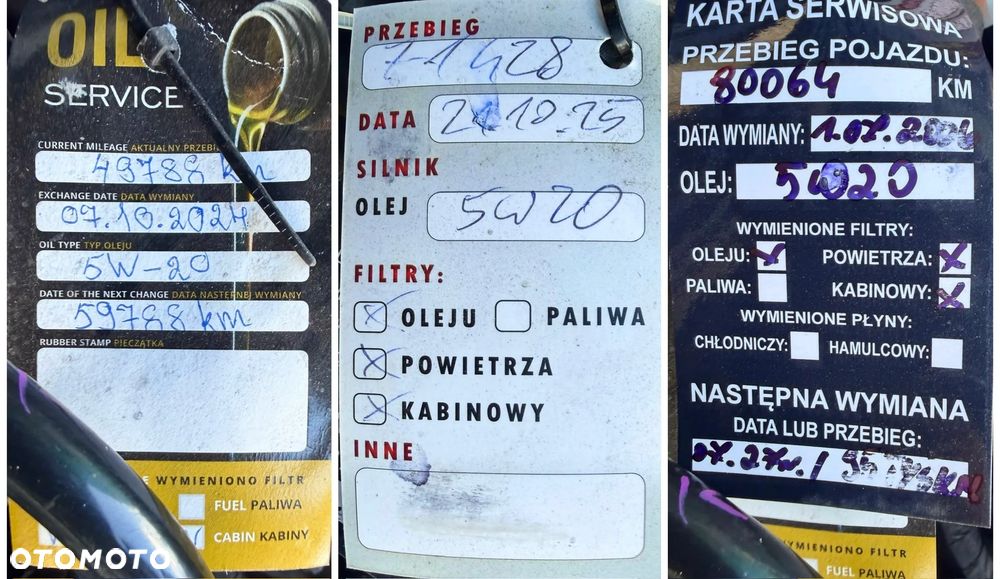 OIL
SERVICE
CURRENT MILEAGE AKTUALNY PRZEBI
49788 km
EXCHANGE DATE DATA WYMIANY
07.10.2024
OIL TYPE TYP OLEJU
5W-20
DATE OF THE NEXT CHANGE DATA NASTĘPNEJ WYMIANY
59788 km
RUBBER STAMP PIECZĄTKA
WYMIENIONO FILTR
FUEL PALIWA
CABIN KABINY
OTOMOTO
PRZEBIEG
71428
DATA
21.10.25
SILNIK
OLEJ
5W20
FILTRY:
OLEJU PALIWA
POWIETRZA
KABINOWY
INNE
KARTA SERWISOWA
PRZEBIEG POJAZDU:
80064 KM
DATA WYMIANY:
OLEJ: 5W20
WYMIENIONE FILTRY:
OLEJU: POWIETRZA:
PALIWA: KABINOWY:
WYMIENIONE PŁYNY:
CHŁODNICZY: HAMULCOWY:
NASTĘPNA WYMIANA
DATA LUB PRZEBIEG:
07.27w./
YMIENIONO FILTR
FUEL PALIWA